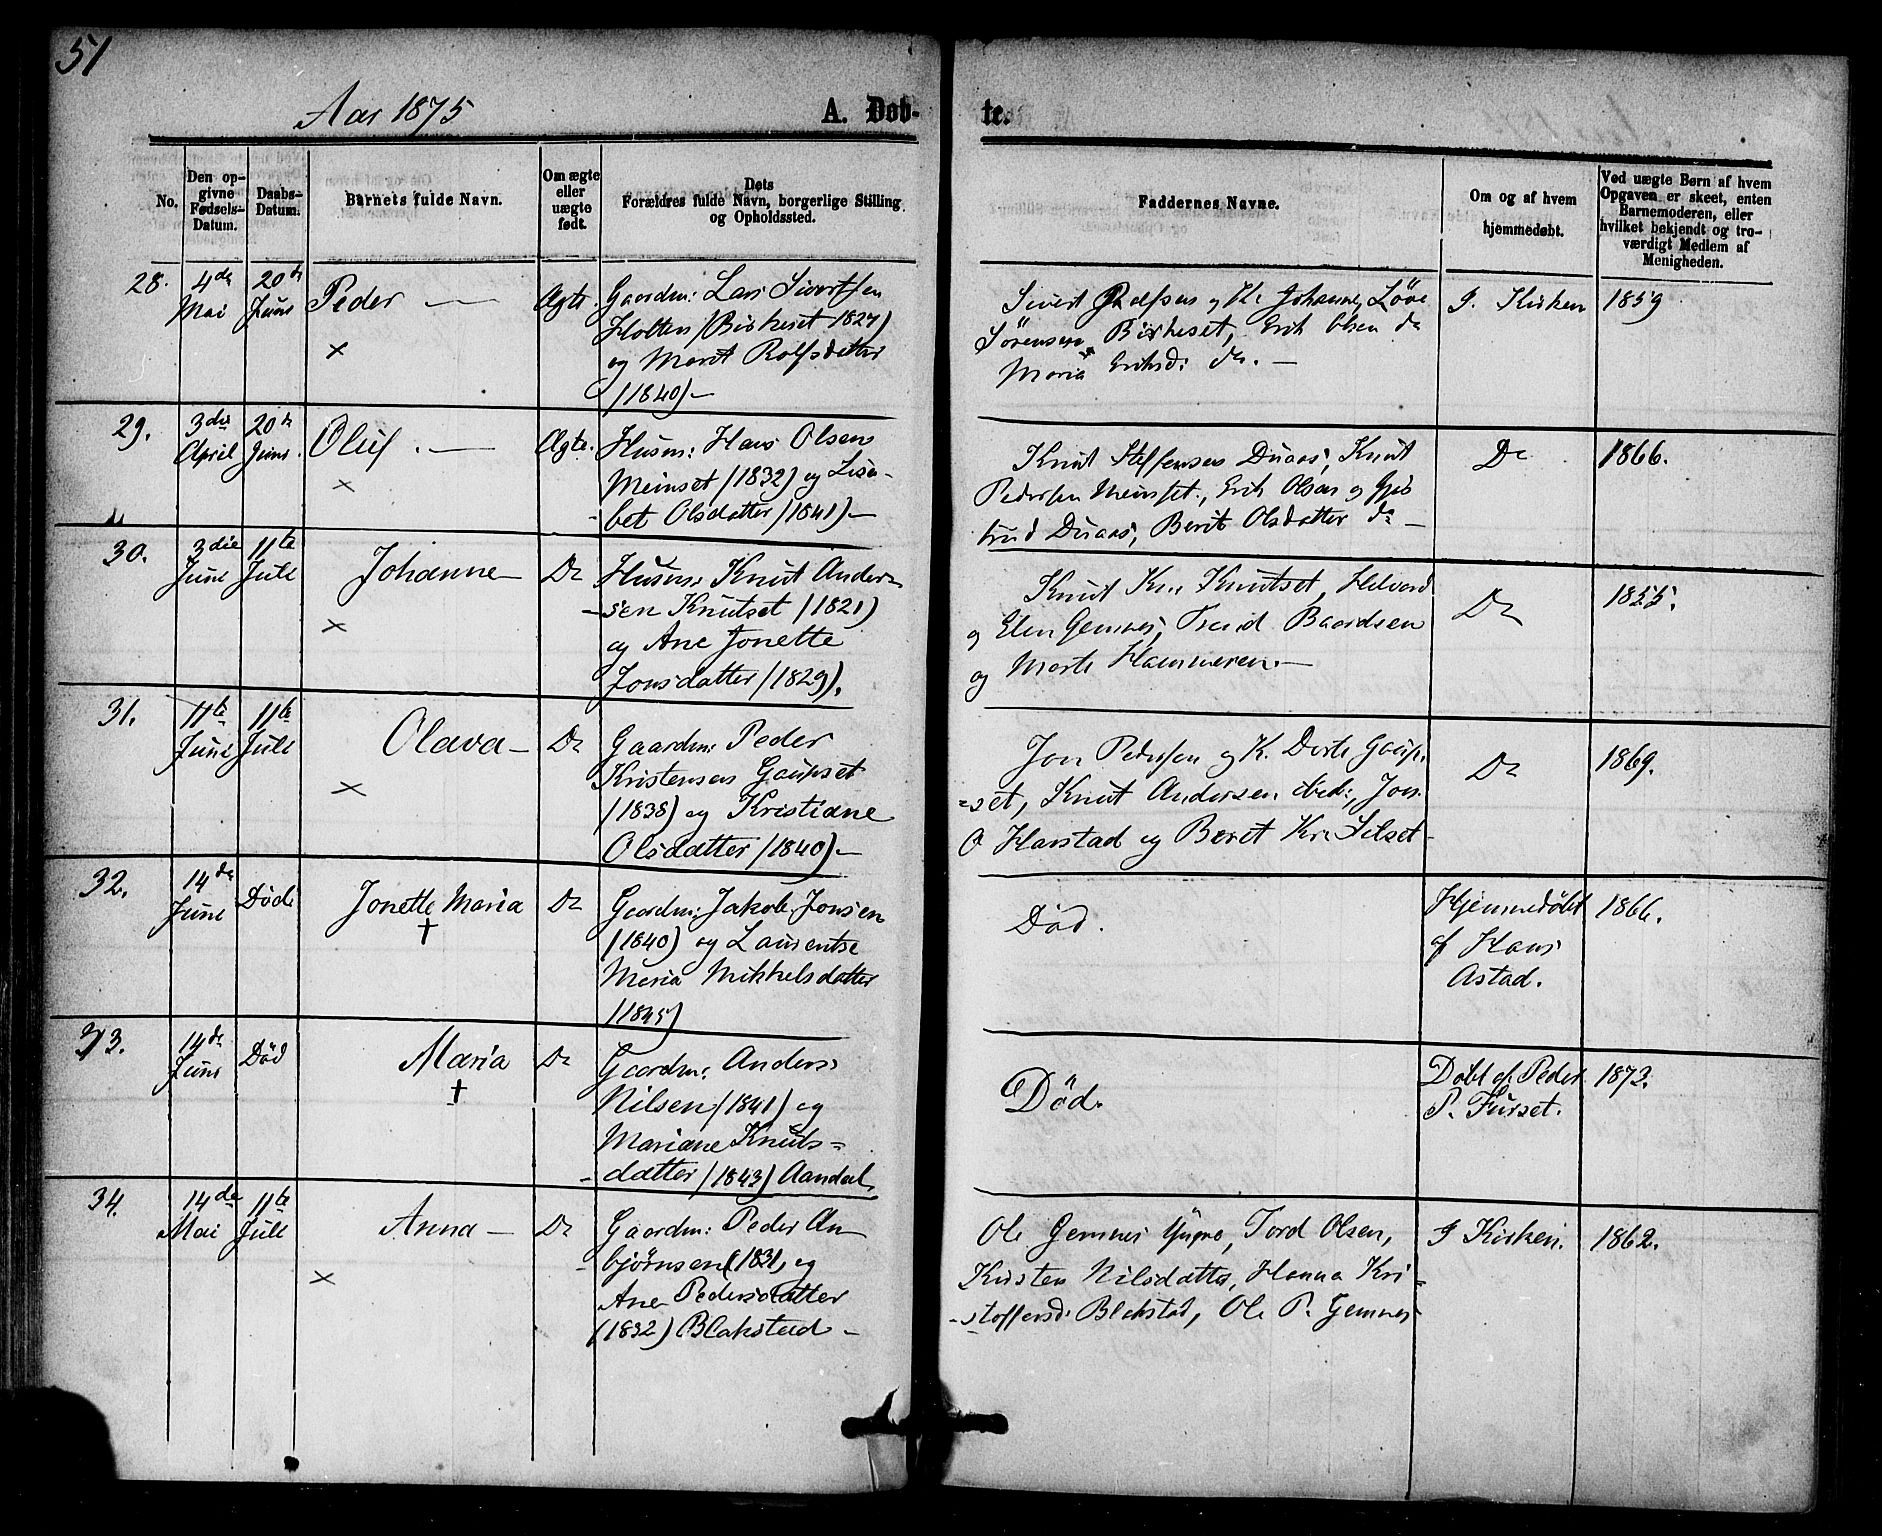 51
Aar 1875
A. Døb-
te.
No.
Den op-
givne
Fødsels-
Datum.
Daabs-
Datum.
Barnets fulde Navn.
Om ægte
eller
uægte
født.
Dets
Forældres fulde Navn, borgerlige Stilling
og Opholdssted.
Faddernes Navne.
Om og af hvem
hjemmedøbt.
Ved uægte Børn af hvem
Opgaven er skeet, enten
Barnemoderen, eller
hvilket bekjendt og tro-
værdigt Medlem af
Menigheden.
28.
4de
Mai
20de
Juni
Peder —
×
Ægte.
Gaardm: Lars Sivertsen
Holten / Birkeset 1827)
og Marit Rolfsdatter
(1840)—
Sivert Rolfsen og Johanne
Sørensen Birkeset, Erik Olsen do
Maria Eriksd: do. —
I. Kirken
1859
29.
3die
April
20de
Juni.
Oluf. —
×
Ægte.
Husm: Hans Olsen
Meinset (1832) og Lisa-
bet Olsdatter (1841)—
Knut Steffensen Duaas, Knut
Pedersen Meinset., Erik Olsen og Gjer
trud Duaas, Berit Olsdatter do —
Do
1866.
30.
3die
Juni
11te
Juli
Johanne —
×
Do
Husm: Knut Ander-
sen Knutset (1821)
og Ane Jonette
Jonsdatter (1829).
Knut Kn. Knutset, Helvard
og Elen Gemnes, Trond Baardsen
og Marte Hammeren. —
Do
1855.
31.
11te
Juni
11te
Juli
Olava —
×
Do
Gaardm: Peder
Kristensen Gaupset
(1838) og Kristiane
Olsdatter (1840)—
Jon Pedersen og K. Dorte Gaup-
=set, Knut Andersen ibid:, Jon
O Harstad og Beret Kr. Silset
Do
1869.
32.
14de
Juni
Død
Jonette Maria
†
Do
Gaardm: Jakob Jonsen
(1840) og Laurentse
Maria Mikkelsdatter
(1845)
Død.
Hjemmedøbt
af Hans
Astad.
1866.
33.
14de
Juni
Død
Maria
†
Do
Gaardm: Anders
Nilsen (1841) og
Mariane Knuts=
datter (1843) Aandal.
Død.
Døbt af Peder
P. Furset.
1872.
34.
14de
Mai
11te
Juli
Anna —
×
Do
Gaardm: Peder An
bjørnsen (1831, og
Ane Pedersdatter
(1832) Blakstad —
Ole Gemnes Yngre, Tord Olsen,
Kirsten Nilsdatter, Hanna Kri-
-stoffersd: Blekstad, Ole P. Gemnes
I Kirken.
1862.